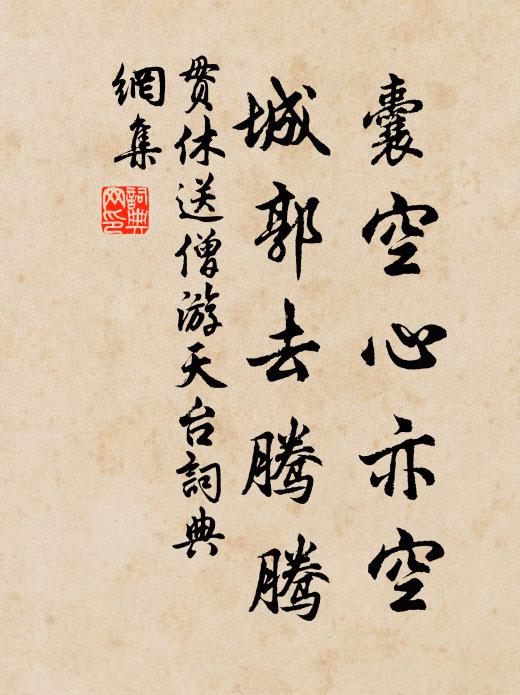 囊空心亦空
城郭去腾腾
贯休送僧游天台詞典
網集
詞典網印